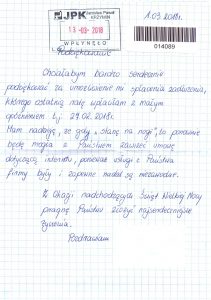 JPK Jarosław Paweł
KRZYMIN
13-03-2018
WPŁYNĘŁO
1.03.2018r.
014089
Podziękowanie
Chciałabym bardzo serdecznie
podziękować za umożliwienie mi spłacenia zadłużenia,
którego ostatnią ratę wpłaciłam z małym
opóźnieniem tj. 27.02.2018r.
Mam nadzieję, że gdy „stanę na nogi", to ponownie
będę mogła z Państwem zawrzeć umowę
dotyczącą internetu, ponieważ usługi z Państwa
firmy były i zapewne nadal są niezawodne.
Z Okazji nadchodzących Świąt Wielkiej Nocy
pragnę Państwu złożyć najserdeczniejsze
życzenia.
Pozdrawiam